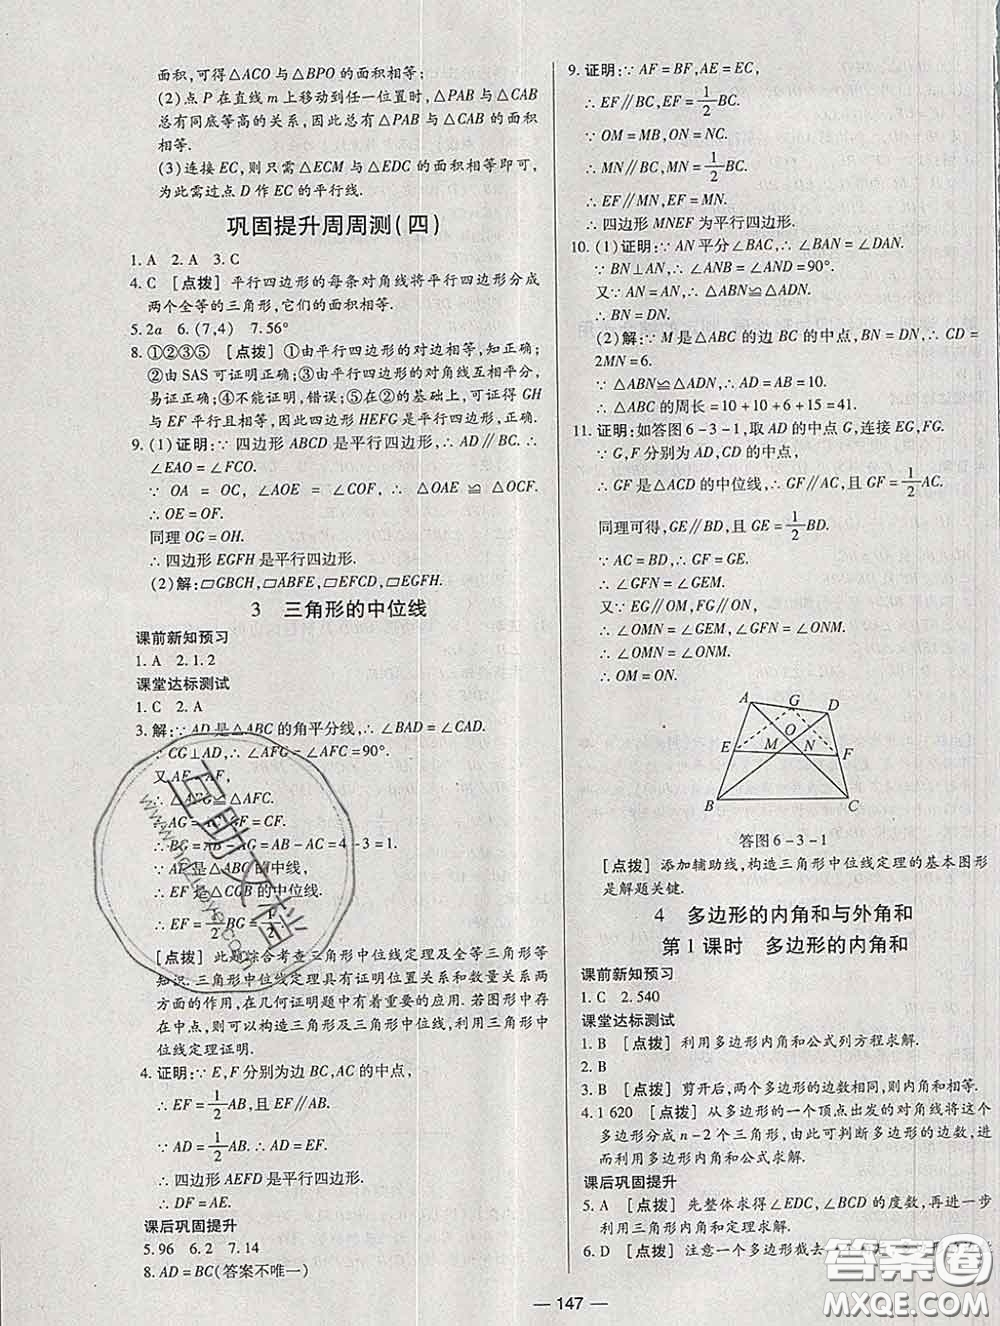 面积,可得△ACO与△BPO的面积相等;
(2)点P在直线m上移动到任一位置时,△PAB与△CAB
总有同底等高的关系,因此总有△PAB与△CAB的面积
相等.
(3)连接EC,则只需△ECM与△EDC的面积相等即可,
为此需过点D作EC的平行线.
巩固提升周周测(四)
1.A 2.A 3.C
4.C [点拨] 平行四边形的每条对角线将平行四边形分成
两个全等的三角形,它们的面积相等.
5.2a 6.(7,4) 7.56°
8.①②③⑤ [点拨] ①由平行四边形的对边相等,知正确;
②由SAS可证明正确;③由平行四边形的对角线互相平分,
易证正确;④不能证明,错误;⑤在②的基础上,可证得GH
与EF平行且相等,因此四边形HEFG是平行四边形,正确.
9.(1)证明:∵四边形ABCD是平行四边形,∴AD∥BC.∴
∠EAO=∠FCO.
∵OA=OC,∠AOE=∠COF,∴△OAE≌△OCF.
∴OE=OF.
同理OG=OH.
∴四边形EGFH是平行四边形.
(2)解:▱GBCH,▱ABFE,▱EFCD,▱EGFH.
3 三角形的中位线
课前新知预习
1.A 2.1.2
课堂达标测试
1.C 2.A
3.解:∵AD是△ABC的角平分线,∴∠BAD=∠CAD.
∵CG⊥AD,∴∠AFG=∠AFC=90°.
又AF=AF,
∴△AFG≌△AFC.
∴AG=AC,GF=CF.
∴BG=AB-AG=AB-AC=4-3=1.
∵AE是△ABC的中线,
∴EF是△CGB的中位线.
∴EF=1/2BG=1/2.
[点拨] 此题综合考查三角形中位线定理及全等三角形等
知识.三角形中位线定理具有证明位置关系和数量关系两
方面的作用,在几何证明题中有着重要的应用.若图形中存
在中点,则可以构造三角形及三角形中位线,利用三角形中
位线定理证明.
4.证明:∵E,F分别为边BC,AC的中点,
∴EF=1/2AB,且EF∥AB.
∵AD=1/2AB.∴AD=EF.
∴四边形AEFD是平行四边形.
∴DF=AE.
课后巩固提升
5.96 6.2 7.14
8.AD=BC(答案不唯一)
9.证明:∵AF=BF,AE=EC,
∴EF∥BC,EF=1/2BC.
∵OM=MB,ON=NC.
∴MN∥BC,MN=1/2BC.
∴EF∥MN,EF=MN.
∴四边形MNEF为平行四边形.
10.(1)证明:∵AN平分∠BAC,∴∠BAN=∠DAN.
∵BN⊥AN,∴∠BNA=∠AND=90°.
又∵AN=AN,∴△ABN≌△ADN.
∴BN=DN.
(2)解:∵M是△ABC的边BC的中点,BN=DN,∴CD=
2MN=6.
∵△ABN≌△ADN,∴AD=AB=10.
∴△ABC的周长=10+10+6+15=41.
11.证明:如答图6-3-1,取AD的中点G,连接EG,FG.
∵G,F分别为AD,CD的中点,
∴GF是△ACD的中位线,∴GF∥AC,且GF=1/2AC.
同理可得,GE∥BD,且GE=1/2BD.
∵AC=BD,∴GF=GE.
∴∠GFN=∠GEM.
又∵EG∥OM,FG∥ON,
∴∠OMN=∠GEM,∠GFN=∠ONM.
∴∠OMN=∠ONM.
∴OM=ON.
A G D
O
E M N F
B C
答图6-3-1
[点拨] 添加辅助线,构造三角形中位线定理的基本图形
是解题关键.
4 多边形的内角和与外角和
第1课时 多边形的内角和
课前新知预习
1.C 2.540
课堂达标测试
1.B [点拨] 利用多边形内角和公式列方程求解.
2.B
3.B [点拨] 剪开后,两个多边形的边数相同,则内角和相等.
4.1 620 [点拨] 从多边形的一个顶点出发的对角线将这个
多边形分成n-2个三角形,由此可判断多边形的边数,进
而利用多边形内角和公式求解.
课后巩固提升
5.A [点拨] 先整体求得∠EDC,∠BCD的度数,再进一步
利用三角形内角和定理求解.
6.D [点拨] 注意一个多边形截去一个角
— 147 —
互助文档
答案圈
MXQE.COM